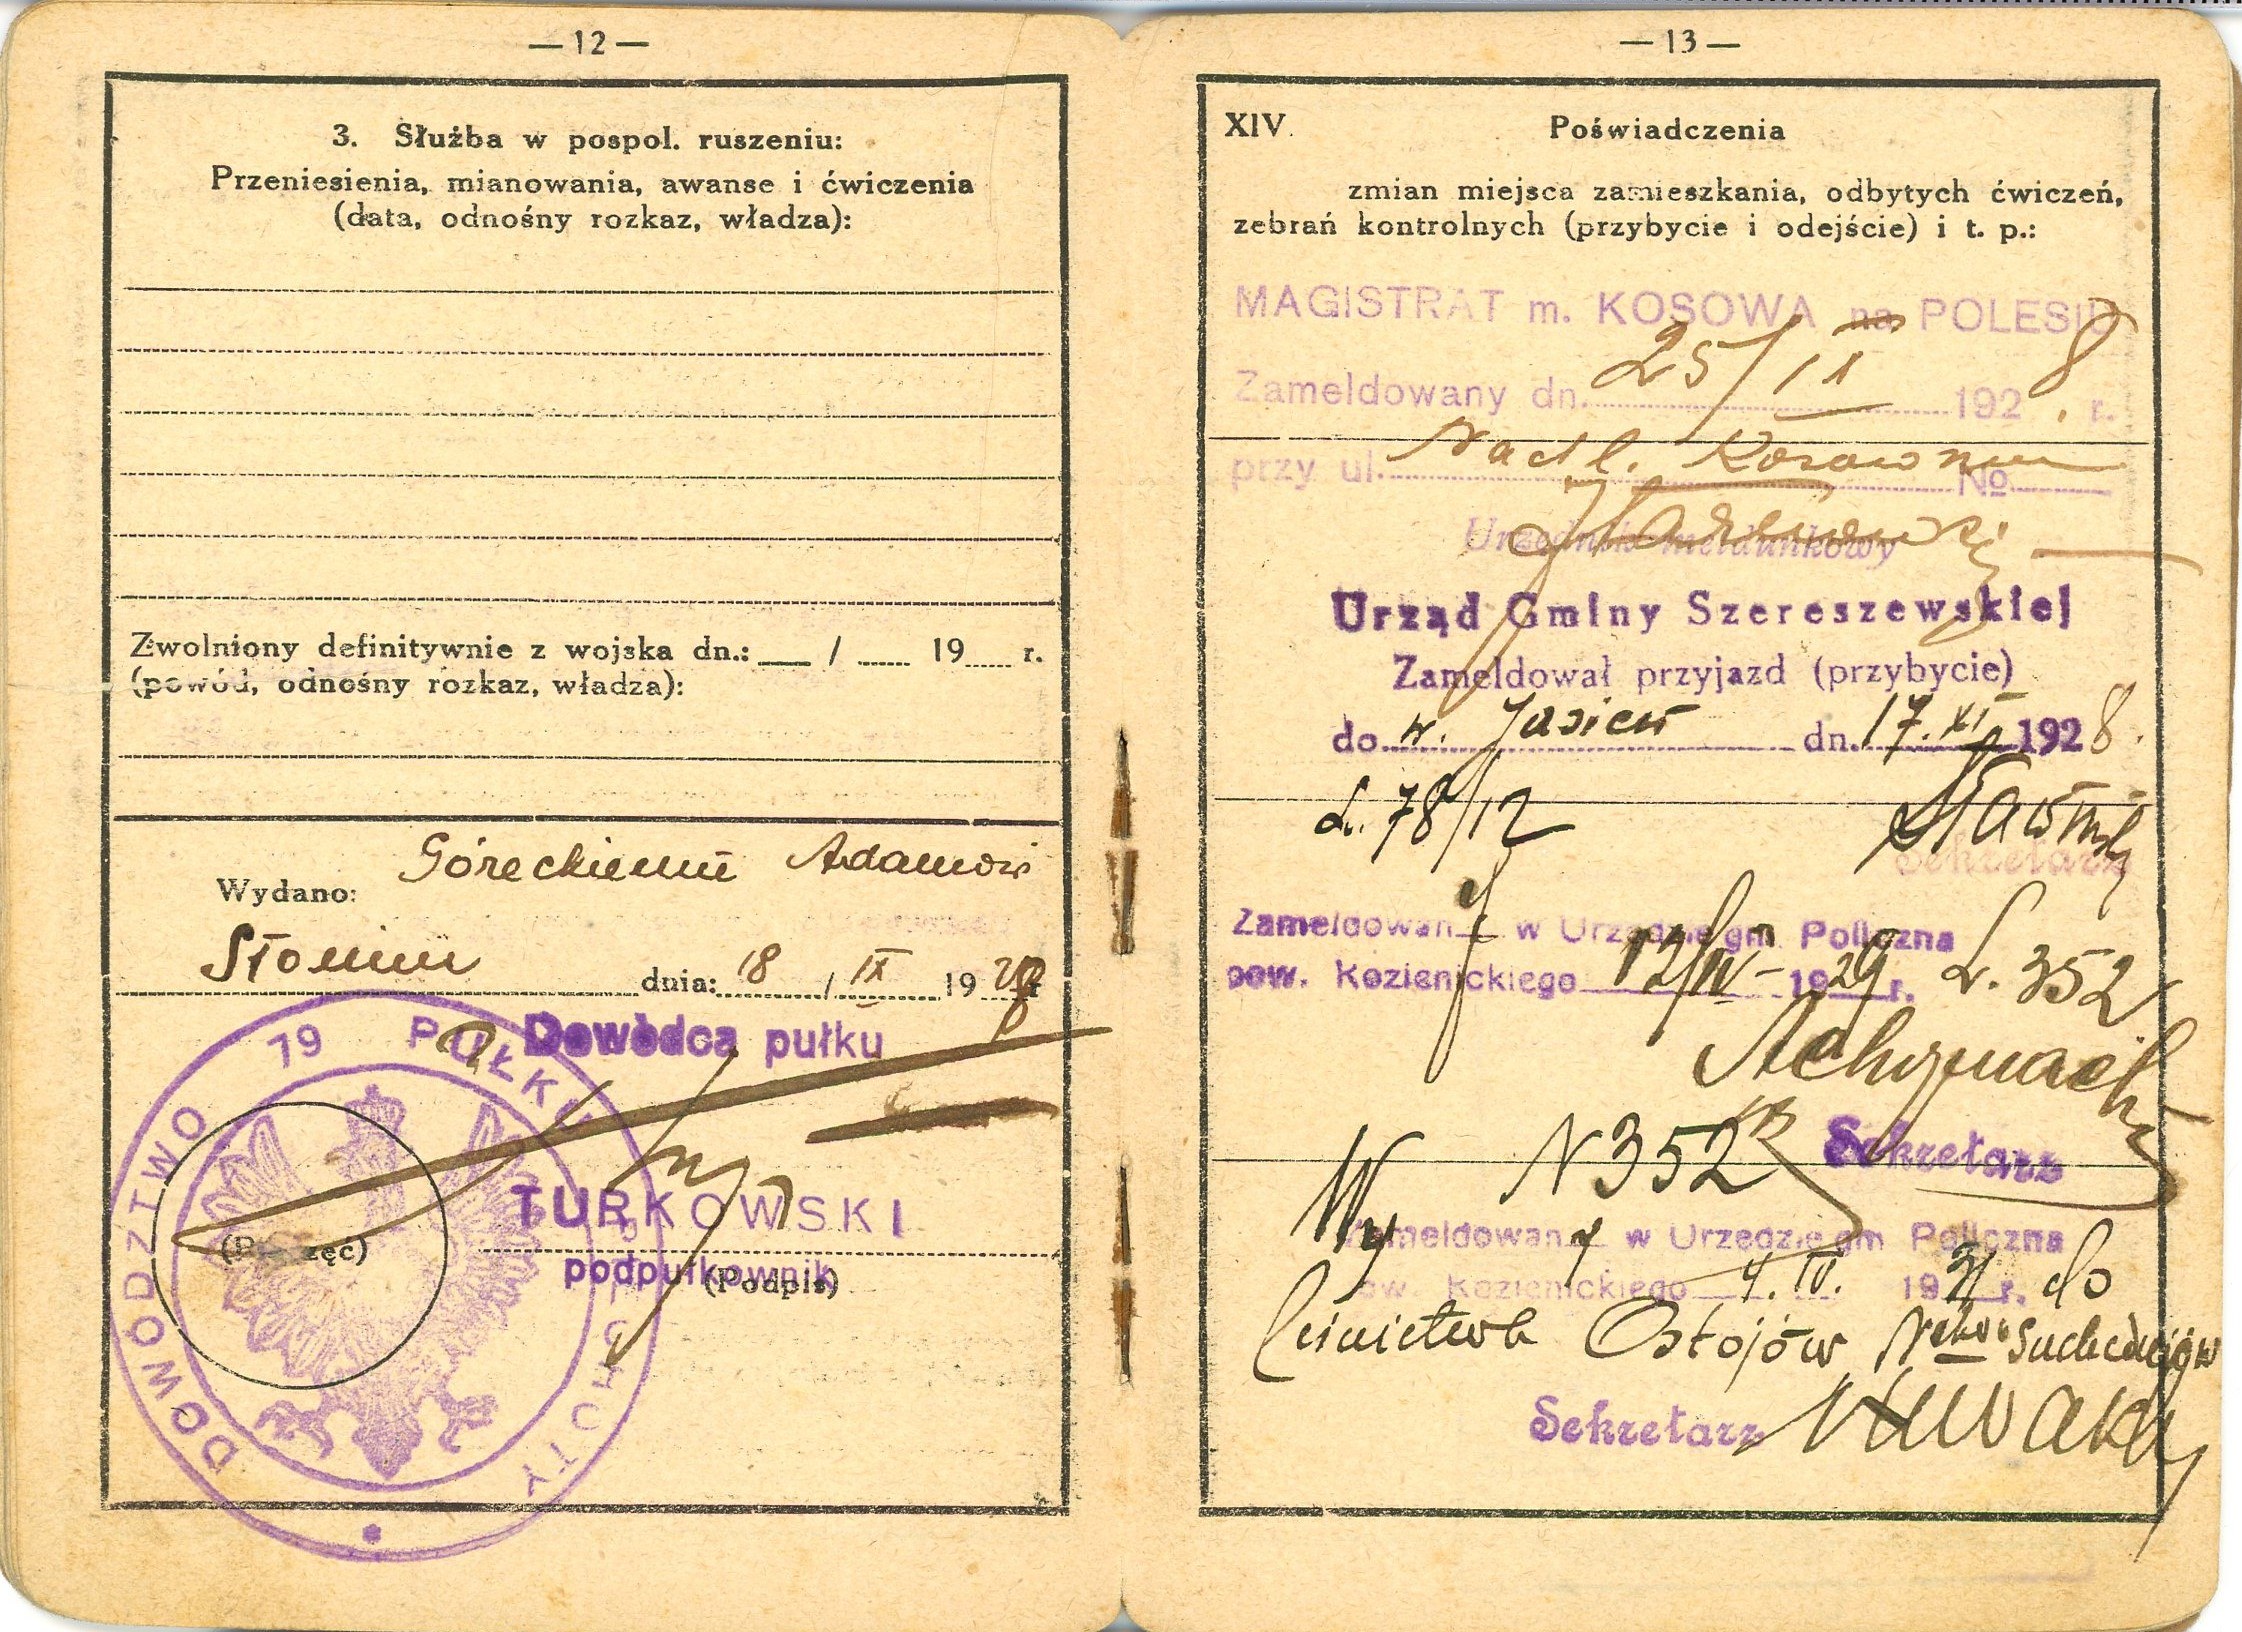 — 12 —
3. Służba w pospol. ruszeniu:
Przeniesienia, mianowania, awanse i ćwiczenia
(data, odnośny rozkaz, władza):
Zwolniony definitywnie z wojska dn.: / 19 r.
(powód, odnośny rozkaz, władza):
Góreckiemu Adamowi
Wydano:
Słonim dnia: 18 / IX 19 28
Dowódca pułku
DOWÓDZTWO 79 PUŁKU PIECHOTY
TURKOWSKI
(Pieczęć)
podpułkownik
(Podpis)
— 13 —
XIV. Poświadczenia
zmian miejsca zamieszkania, odbytych ćwiczeń,
zebrań kontrolnych (przybycie i odejście) i t. p.:
MAGISTRAT m. KOSOWA na POLESIU
Zameldowany dn. 25/IX 1928. r.
przy ul. Nadl. No
Urzędnik meldunkowy
Urząd Gminy Szereszewskiej
Zameldował przyjazd (przybycie)
do w. Jasień dn. 17. XI 1928.
L. 78/12
Sekretarz
Zameldowany w Urzędzie gm. Policzna
pow. Kozienickiego 12/IV 1929 r. L. 352
Sekretarz
N 352
Wy
Zameldowany w Urzędzie gm Policzna
pow. Kozienickiego 4. IV. 1931 r. do
leśnictwa Ostojów Suchedniów
Sekretarz